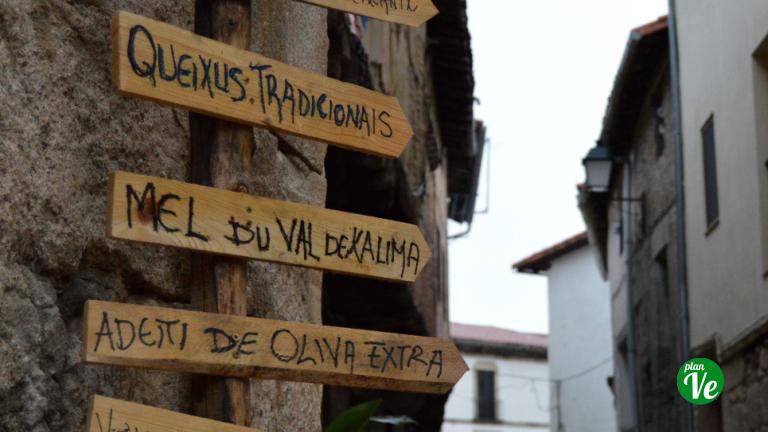 QUEIXUS TRADICIONAIS
MEL DU VAL DE XALIMA
ADEITI DE OLIVA EXTRA
plan
Ve